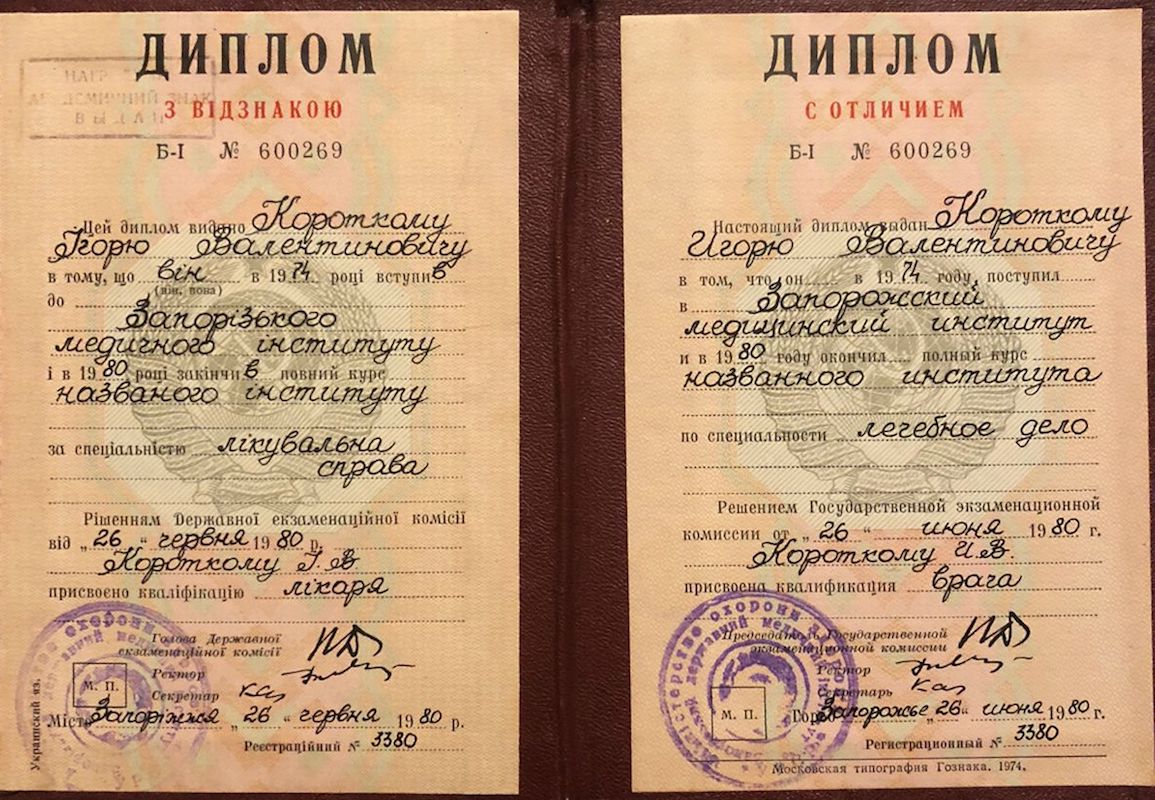 ДИПЛОМ
З ВІДЗНАКОЮ
Б-І № 600269
Цей диплом видано Короткому
Ігорю Валентиновичу
в тому, що він в 1974 році вступив
(він, вона)
до
Запорізького
медичного інституту
і в 1980 році закінчив повний курс
названого інституту
за спеціальністю лікувальна
справа
Рішенням Державної екзаменаційної комісії
від „26“ червня 1980 р.
Короткому І. В
присвоєно кваліфікацію лікаря
Голова Державної
екзаменаційної комісії
Ректор
М. П.
Секретар
Місто Запоріжжя „26“ червня 1980 р.
Реєстраційний № 3380
Украинский яз.
ДИПЛОМ
С ОТЛИЧИЕМ
Б-І № 600269
Настоящий диплом выдан Короткому
Игорю Валентиновичу
в том, что он в 1974 году поступил
в Запорожский
медицинский институт
и в 1980 году окончил полный курс
названного института
по специальности лечебное дело
Решением Государственной экзаменационной
комиссии от „26“ июня 1980 г.
Короткому И. В.
присвоена квалификация врача
Председатель Государственной
экзаменационной комиссии
Ректор
Секретарь
М. П.
Город Запорожье „26“ июня 1980 г.
Регистрационный № 3380
Московская типография Гознака. 1974.